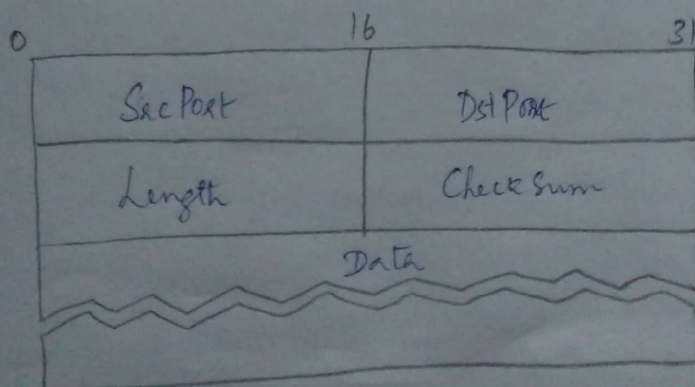 0 16 31
SrcPort DstPort
Length CheckSum
Data